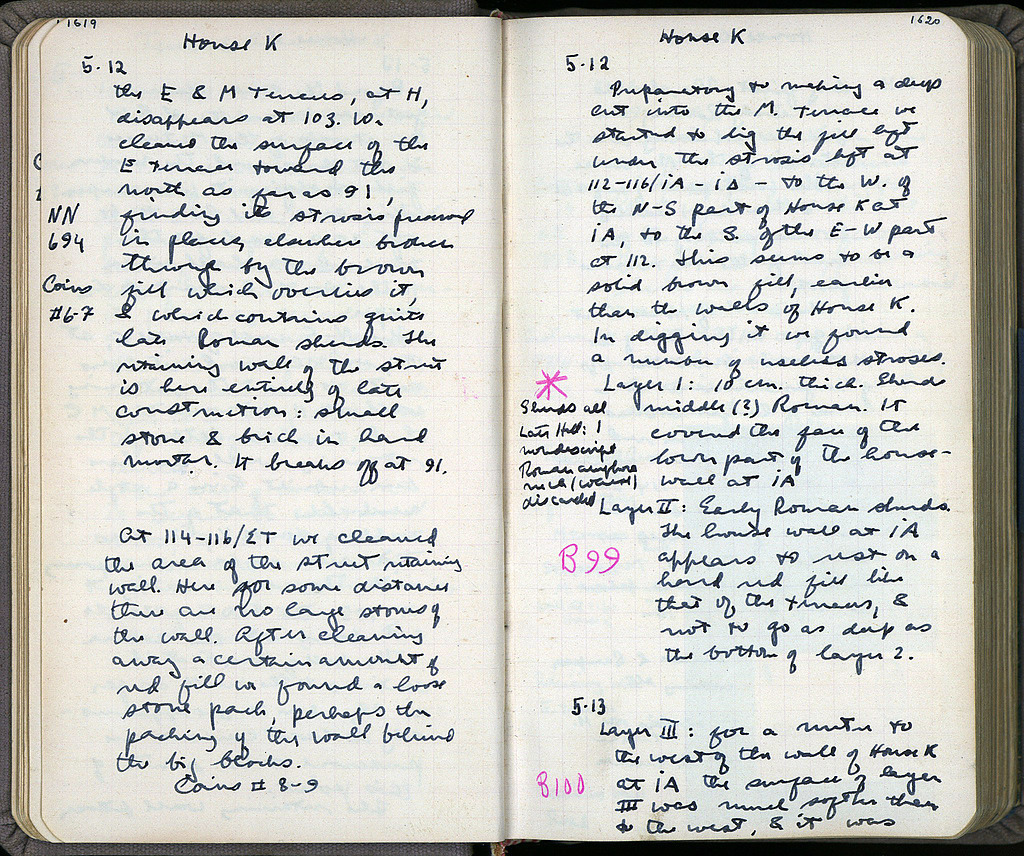 1619
House K
5-12
the E & M Terraces, at H,
disappears at 103. We
cleared the surface of the
E Terrace toward the
north as far as 91,
NN
694
finding its strosis preserved
in places, elsewhere broken
through by the brown
Coins
#6-7
fill which overlies it,
& which contains quite
late Roman sherds. The
retaining wall of the street
is here entirely of late
construction: small
stone & brick in hard
mortar. It breaks off at 91.
At 114-116/ET we cleaned
the area of the street retaining
wall. Here for some distance
there are no large stones of
the wall. After cleaning
away a certain amount of
red fill we found a loose
stone pack, perhaps the
packing of the wall behind
the big blocks.
Coins # 8-9
1620
House K
5-12
Preparatory to making a deep
cut into the M. Terrace we
started to dig the fill left
under the strosis left at
112-116/ΙΑ - ΙΔ - to the W. of
the N-S part of House K at
ΙΑ, to the S. of the E-W part
at 112. This seems to be a
solid brown fill, earlier
than the walls of House K.
In digging it we found
a number of useless stroses.
*
Layer 1: 10 cm. thick. Sherds
middle (?) Roman. It
covered the face of the
lower part of the house-
wall at ΙΑ
Sherds all
Late Hell: 1
nondescript
Roman amphora
neck (worn)
discarded
Layer II: Early Roman sherds.
The house wall at ΙΑ
B99
appears to rest on a
hard red fill like
that of the terraces, &
not to go as deep as
the bottom of layer 2.
5-13
Layer III: for a meter to
the west of the wall of House K
B100
at ΙΑ the surface of layer
III was much softer than
to the west, & it was